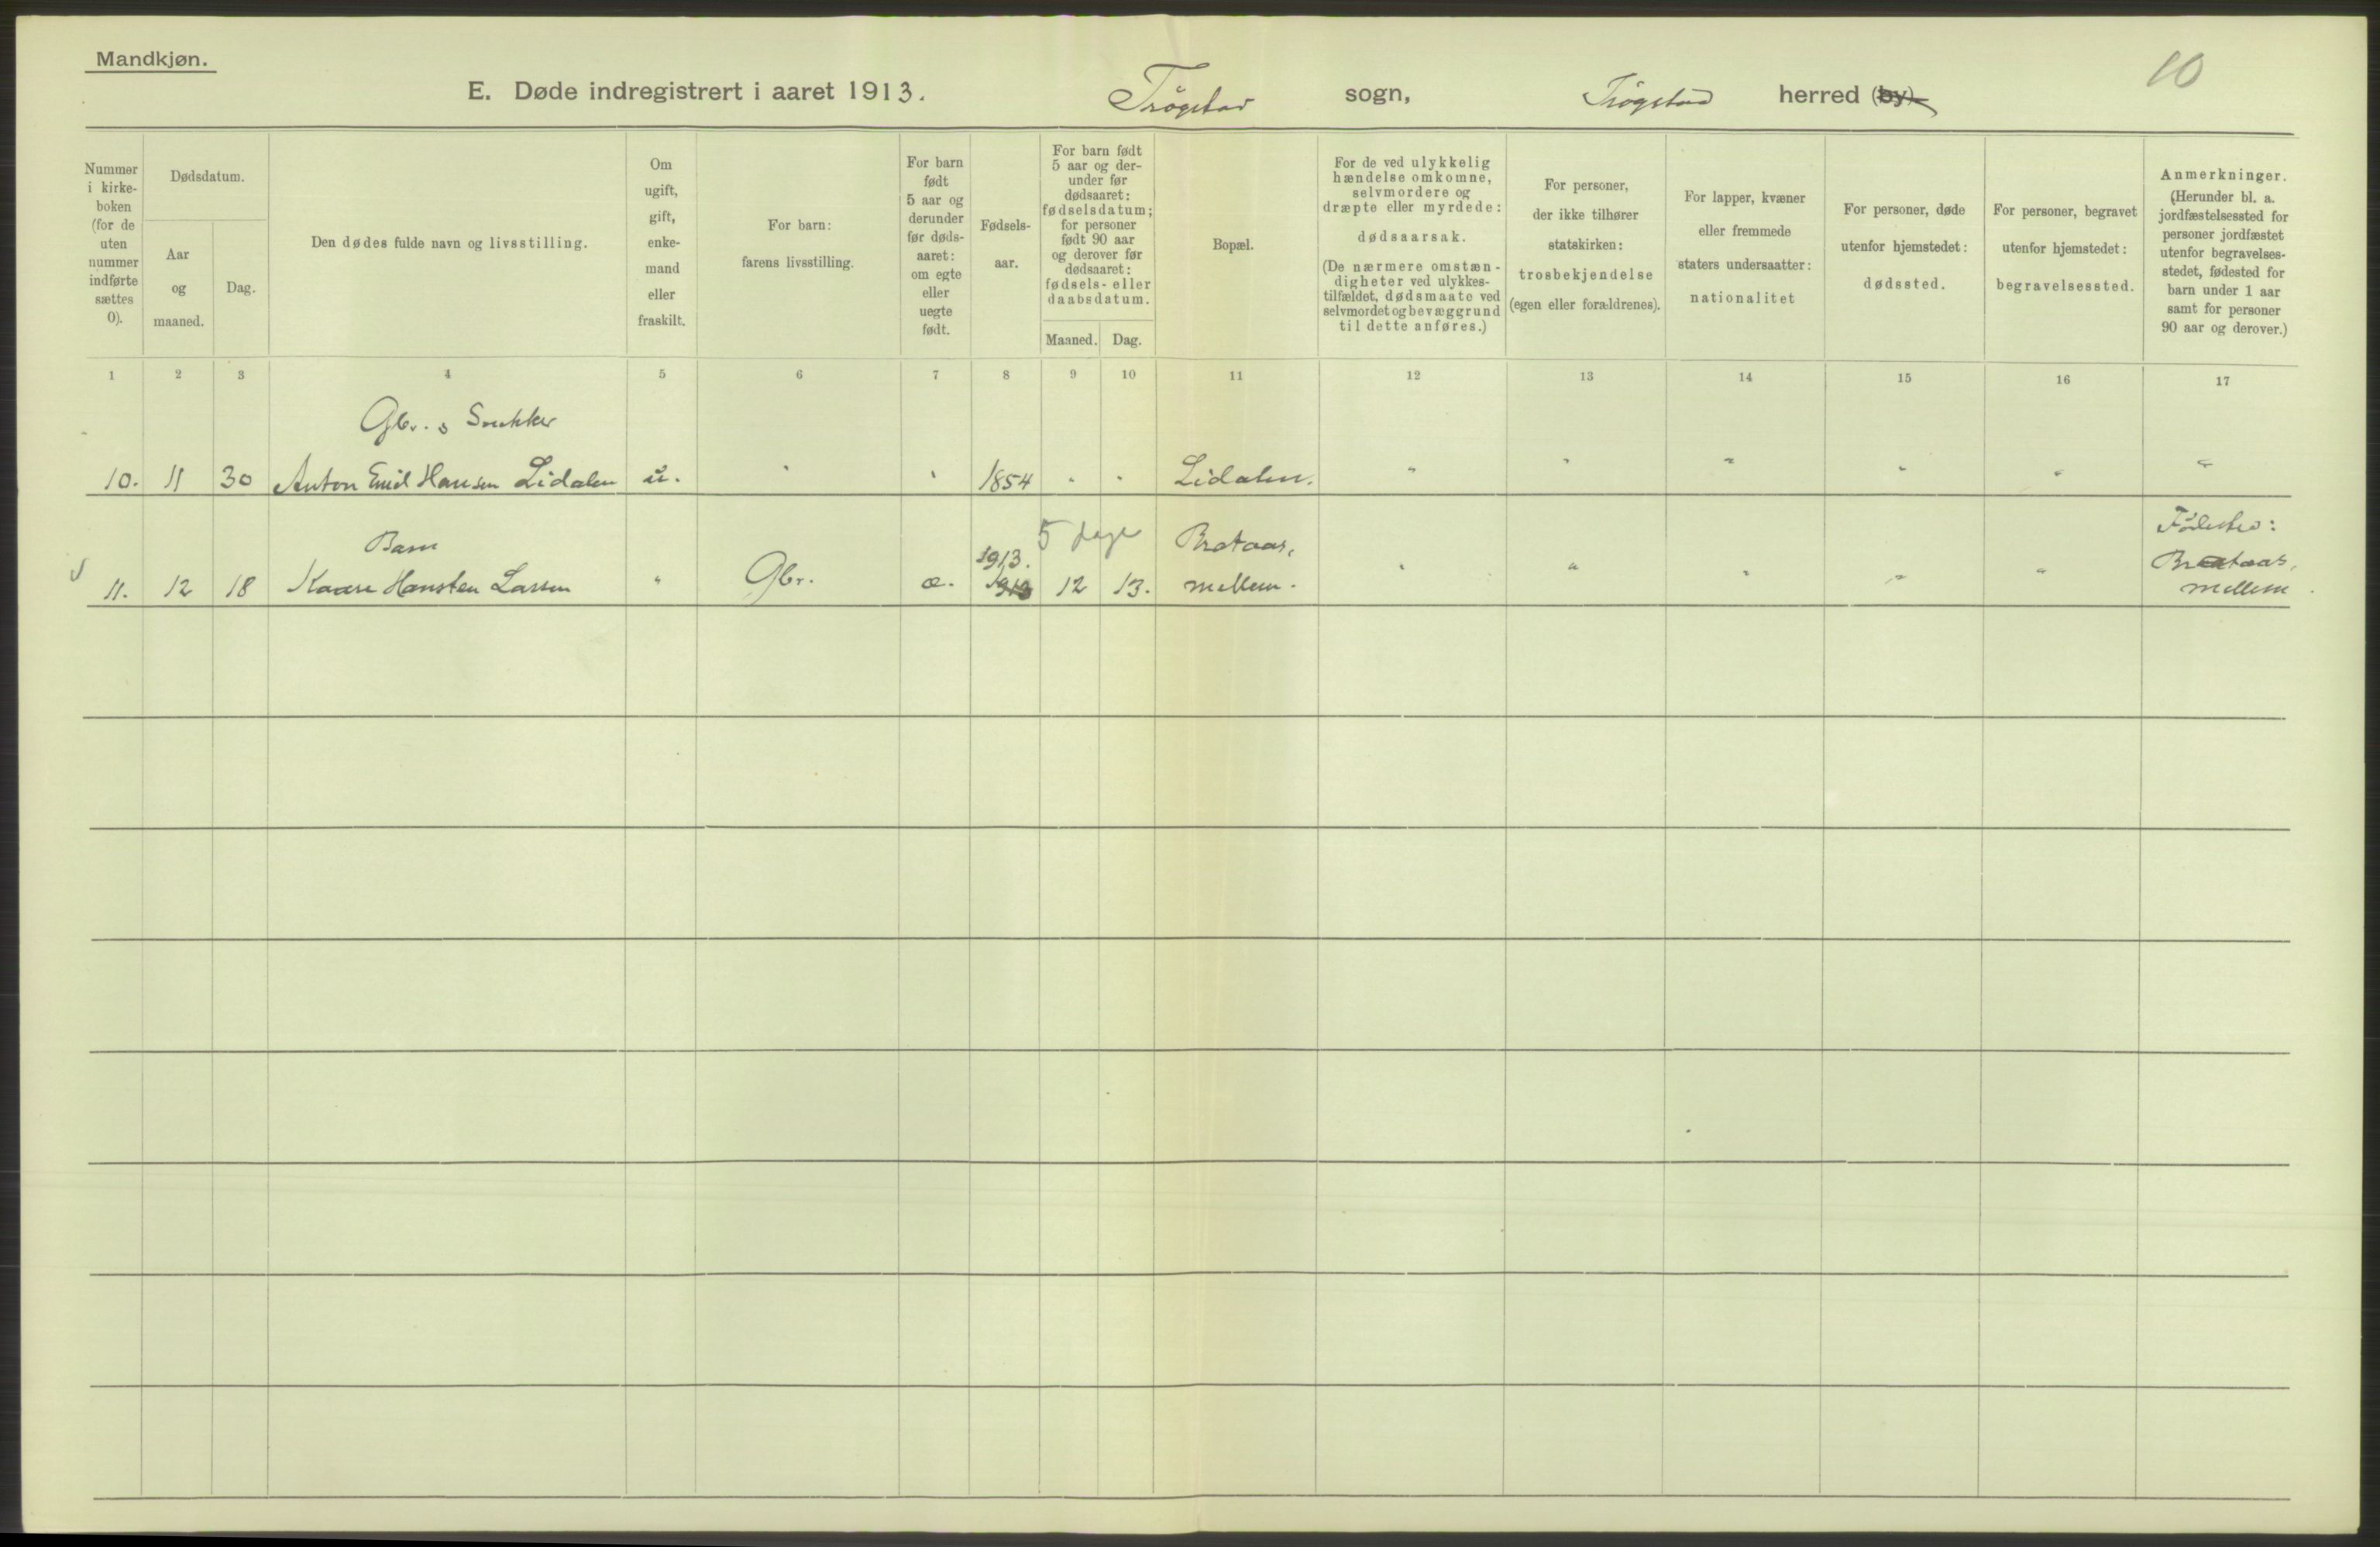 Mandkjøn.
10
E. Døde indregistrert i aaret 1913. Trøgstad sogn, Trøgstad herred (by)
Nummer i kirke-
boken
(for de
uten
nummer
indførte
sættes
0).
Dødsdatum.
Aar
og
maaned.
Dag.
Den dødes fulde navn og livsstilling.
Om
ugift,
gift,
enke-
mand
eller
fraskilt.
For barn:
farens livsstilling.
For barn
født
5 aar og
derunder
før døds-
aaret:
om egte
eller
uegte
født.
Fødsels-
aar.
For barn født
5 aar og der-
under før
dødsaaret:
fødselsdatum;
for personer
født 90 aar
og derover før
dødsaaret:
fødsels- eller
daabsdatum.
Maaned. Dag.
Bopæl.
For de ved ulykkelig
hændelse omkomne,
selvmordere og
dræpte eller myrdede:
dødsaarsak.
(De nærmere omstæn-
digheter ved ulykkes-
tilfældet, dødsmaate ved
selvmordet og bevæggrund
til dette anføres.)
For personer,
der ikke tilhører
statskirken:
trosbekjendelse
(egen eller forældrenes).
For lapper, kvæner
eller fremmede
staters undersaatter:
nationalitet
For personer, døde
utenfor hjemstedet:
dødssted.
For personer, begravet
utenfor hjemstedet:
begravelsessted.
Anmerkninger.
(Herunder bl. a.
jordfæstelsessted for
personer jordfæstet
utenfor begravelses-
stedet, fødested for
barn under 1 aar
samt for personer
90 aar og derover.)
1 2 3 4 5 6 7 8 9 10 11 12 13 14 15 16 17
Gbr. & Snekker
10. 11 30 Anton Emil Hansen Lidalen u. " " 1854 " " Lidalen. " " " " " "
Barn 5 dage Brataas, Fødested:
1913. Brataas,
11. 12 18 Kaare Hansten Larsen " Gbr. æ. 12 13. mellem. " " " " " mellem.